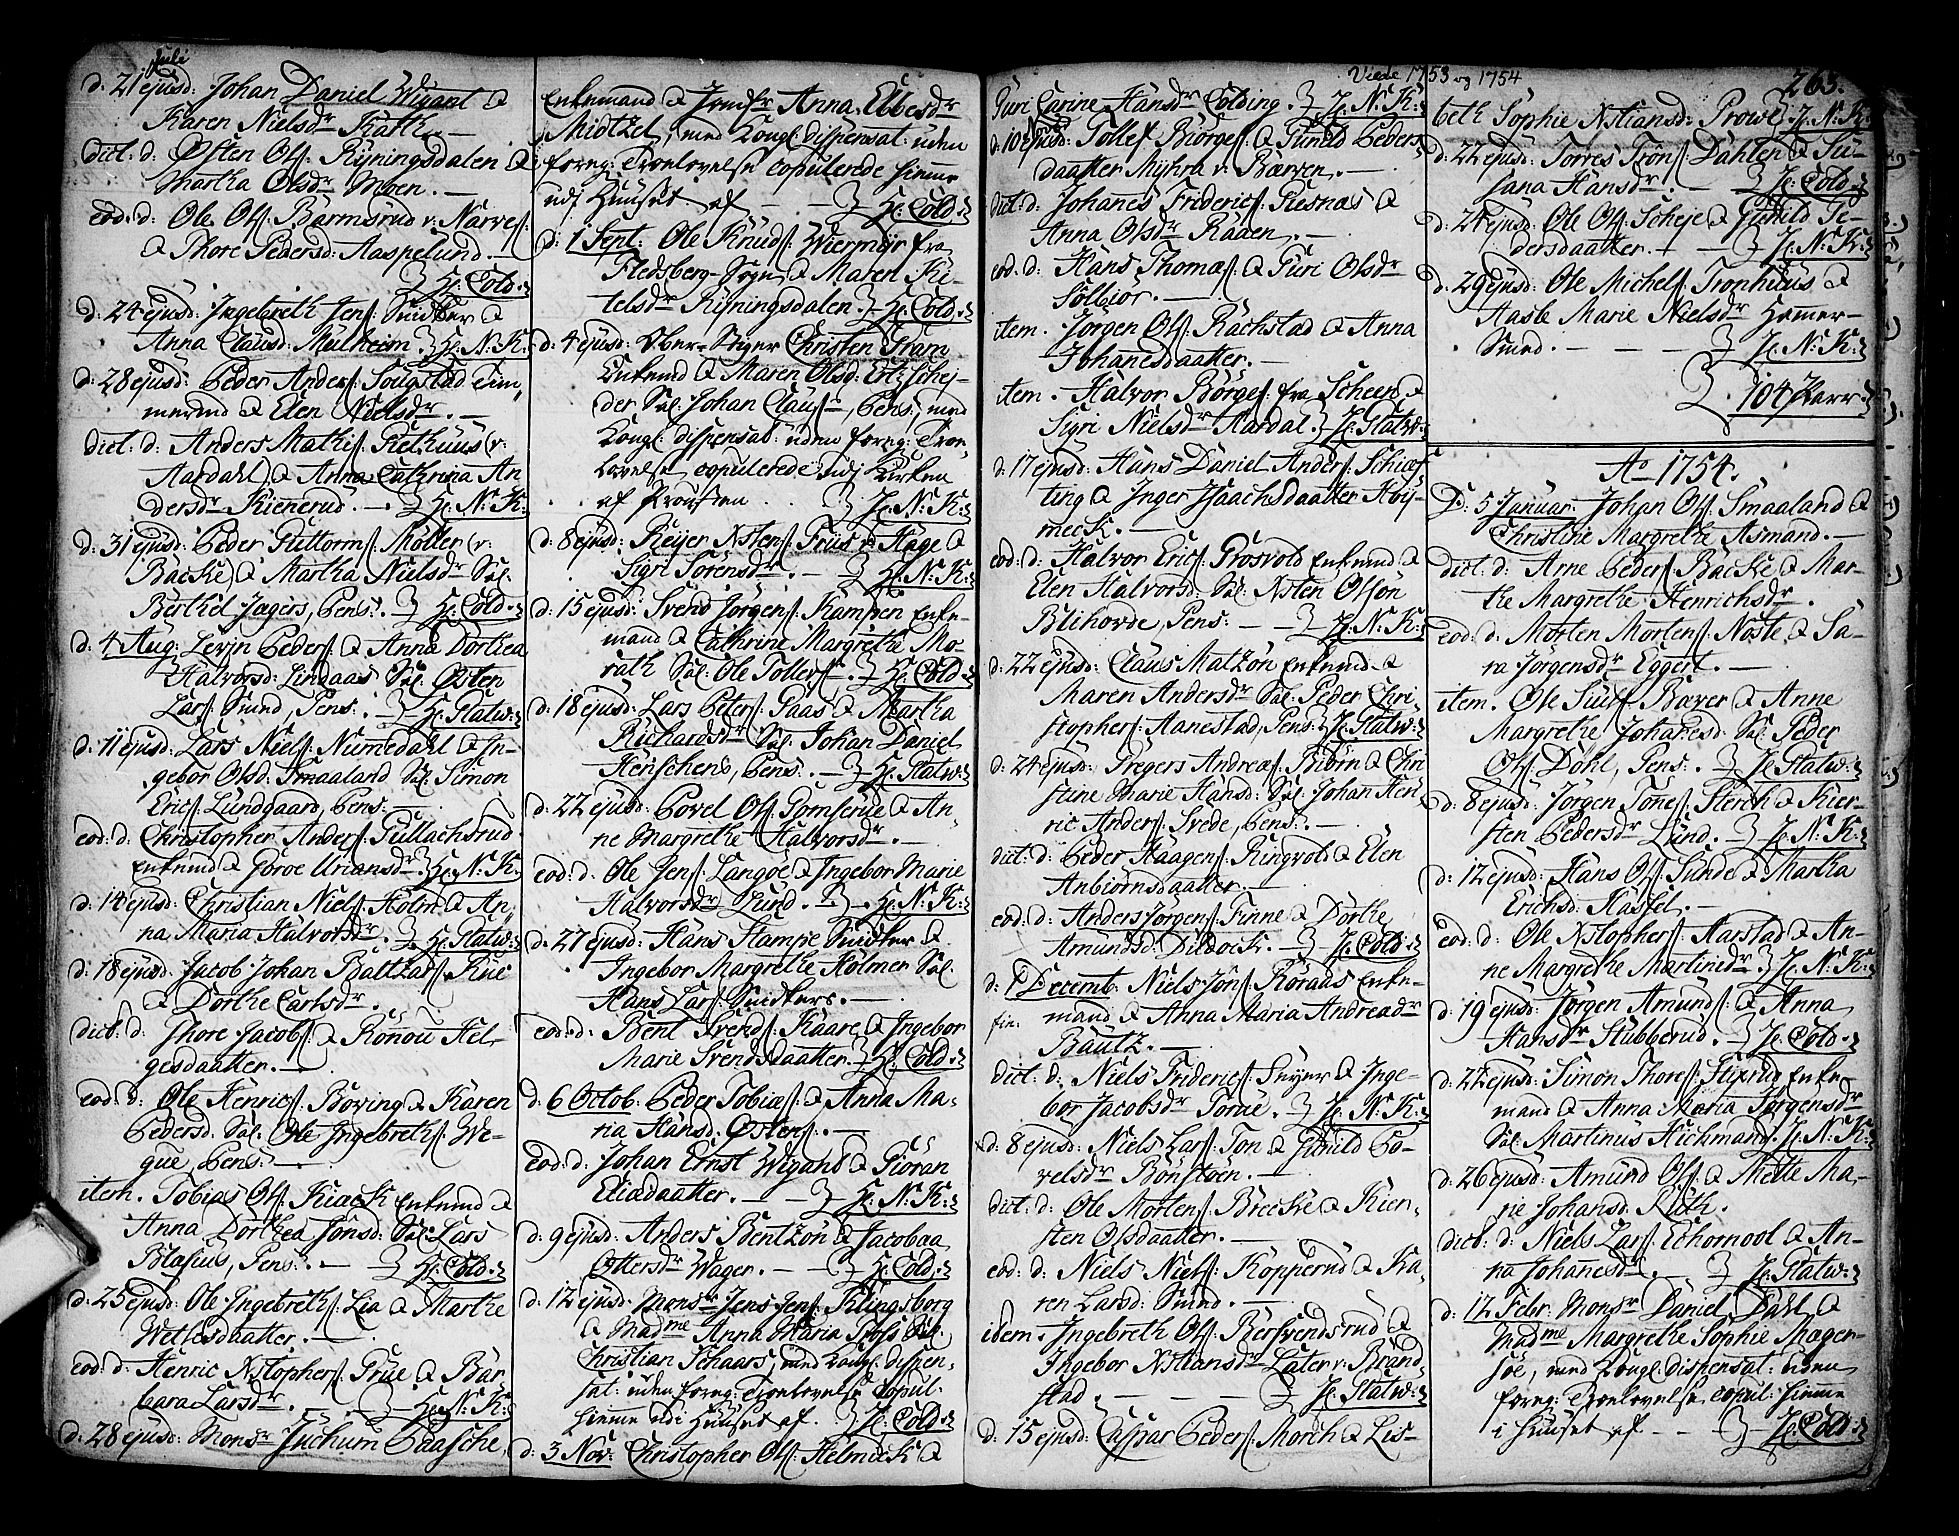 Juli
d. 21 ejusd: Johan Daniel Wigant &
Karen Nielsdr Rath. —
dict: d: Østen Ols: Ryningsdalen &
Martha Olsdr Moen. —
eod: d: Ole Ols: Barmsrud v: Narves:
& Thore Pedersd: Aaspelund —
H: Cold.
d: 24 ejusd: Ingebreth Jens: Snidker &
Anna Clausd: Mulheim. H: N: K:
d: 28 ejusd: Peder Anders: Sougstad Tim-
mermd & Elen Nielsdr. —
dict: d: Anders Mathis: Riethuus (v:
Aardahl) & Anna Cathrina An
dersdr Kiennerud. — H: N: K:
d: 31 ejusd: Peder Guttorm: Møller (v:
Backe) & Martha Nielsdr Sal:
Berthel Jagers, Pens: H: Cold.
d. 4 Aug: Levin Peders: & Anna Dorthea
Halvorsd: Lindaas Sal: Østen
Lars: Smed, Pens: — H: Statw:
d: 11 ejusd: Lars Niels: Numedahl & In-
gebor Olsd: Smaaland Sal: Simon
Erics: Lundgaard, Pens: —
eod: d: Christopher Anders: Gullachsrud
Enkemd & Goroe Uriansdr. H: N: K:
d: 14 ejusd: Christian Niels: Holm & An-
na Maria Halvorsdr. — H: Statw:
d: 18 ejusd: Jacob Johan Baltzars: Rue
& Dorthe Carlsdr. —
dict: d: Thore Jacobs: & Ronou Hel-
gesdaatter. —
eod: d: Ole Henrics: Boving & Karen
Pedersd: Sal: Ole Ingebreths: We-
gue, Pens: —
item. Tobias Ols: Kiack Enkemd &
Anna Dorthea Jonsd: Sal: Lars
Blasius, Pens: — H: Cold.
d: 25 ejusd: Ole Ingebreths: Lia & Marthe
Wetlesdaatter. —
eod: d: Henric Xstophers: Grue & Bar-
bara Larsdr. — H: N: K:
d: 28 ejusd: Monsr Juchum Paasche,
Enkemand & Jomfr Anna Ebbesdr
Midtzel, med Kongl: dispensat: uden
foreg: Troelovelse copulerede hiemme
udj Huuset af — H: Cold.
d: 1 Sept: Ole Knuds: Wiermyr fra
Flesberg Sogn & Maren Ki-
telsdr Ryningsdalen. H: Cold.
d: 4 ejusd: Ober-Stiger Christen Tram
Enkemd & Maren Olsd: Erl: Schej-
der Sal: Johan Claus:, Pens:, med
Kongl: dispensat: uden foreg: Troe-
lovelse copulerede udj Kirken
af Provsten H: N: K:
d: 8 ejusd: Reijer Xstens: Fruus v: Hage &
Sigri Sørensdr. — H: N: K:
d: 15 ejusd: Svend Jørgens: Kampen Enke-
mand & Cathrine Margrethe Mo-
rath Sal: Ole Tollers: — H: Cold.
d: 18 ejusd: Lars Peters: Paas & Martha
Richardsdr Sal: Johan Daniel
Henschens, Pens: — H: Statw:
d: 22 ejusd: Povel Ols: Gomserud & An-
ne Margrethe Halvorsdr. —
eod: d: Ole Jens: Langøe & Ingebor Marie
Halvorsdr Lund. — H: N: K:
d: 27 ejusd: Hans Stampe Snidker &
Ingebor Margrethe Holmer Sal:
Hans Lars: Snidkers. —
eod: d: Bent Svends: Kaare & Ingebor
Marie Svendsdaatter. H: Cold.
d: 6 Octob: Peder Tobias: & Anna Ma-
ria Hansd: Østens: —
eod: d: Johan Ernst Wigand & Gioran
Eliædaatter. — H: N: K:
d: 9 ejusd: Anders Bentzon & Jacobaa
Ottersdr Wager. — H: Cold.
d: 12 ejusd: Monsr Jens Jens: Klingsborg
& Madme Anna Maria Ross Sal:
Christian Schaars, med Kongl: dispen-
sat: uden foreg: Troelovelse copul:
hiemme udi Huuset af. H: Cold.
d: 3 Nov: Christopher Ols: Helmick &
Viede 1753 og 1754
Guri Carine Hansdr Colding. H: N: K:
d: 10 ejusd: Tollef Børges: & Gunild Peders-
daatter Myhra v: Barven. —
dict: d: Johanes Friderics: Giesnæs &
Anna Olsdr Raaen. —
eod: d: Hans Thomæs: & Guri Olsdr
Solbiør. —
item. Jørgen Ols: Rachstad & Anna
Johanesdaatter. —
item. Halvor Børges: fra Scheen &
Sigri Nielsdr Aardal. H: Statw:
d: 17 ejusd: Hans Daniel Anders: Schief-
ting & Inger Isaachsdaatter Høij-
meck. —
eod: d: Halvor Erics: Grosvold Enkemd &
Elen Halvorsd: Sal: Xsten Olson
Blihovde, Pens: — H: N: K:
d: 22 ejusd: Claus Matzon Enkemd &
Maren Andersdr Sal: Peder Chri-
stophers: Aanestad, Pens: H: Statw:
d: 24 ejusd: Gregers Andreæ: Biørn & Chri
stine Marie Hansd: Sal: Johan Hen
ric Anders: Svede, Pens: —
dict: d: Peder Haagens: Ringvold & Elen
Anbiørnsdaatter. —
eod: d: Anders Jørgens: Finne & Dorthe
Amundsd: Dildock. — H: Cold.
d: 1 Decemb: Niels Jons: Roraas Enke-
fin: mand & Anna Maria Andreædr
Bautz. —
dict: d: Niels Friderics: Snyer & Inge-
bor Jacobsdr Torue. — H: N: K:
d: 8 ejusd: Niels Lars: Ton & Gunild Po-
velsdr Bonstoen. —
dict: d: Ole Mortens: Brecke & Kier-
sten Olsdaatter. —
eod: d: Niels Niels: Kopperud & Ka-
ren Larsd: Smed. —
idem. Ingebreth Ols: Bersvendsrud &
Ingebor Xstiansdr Later v: Brand
stad. — H: Statw:
d: 15 ejusd: Caspar Peders: Morch & Lis-
263.
beth Sophie Xstiansd: Prowe. H: N: K:
d: 22 ejusd: Torres Trøns: Dahlen & Su-
sana Hansdr. — H: Cold.
d: 24 ejusd: Ole Ols: Scheje & Gunild Pe-
dersdaatter. — H: N: K:
d: 29 ejusd: Ole Michels: Tronhuus &
Aasle Marie Nielsdr Hamer-
Smed. — H: N: K:
104 Parr.
Ao 1754.
D: 5 Januar: Johan Ols: Smaaland &
Christine Margrethe Asmand. —
dict: d: Arne Peders: Backe & Mar-
the Margrethe Henrichsdr. —
eod: d: Morten Mortens: Noste & Sa-
ra Jørgensdr Eggert. —
item. Ole Siuls: Baver & Anne
Margrethe Johanesd: Sal: Peder
Ols: Dohl, Pens: H: Statw:
d: 8 ejusd: Jørgen Tønes: Sterch & Kier-
sten Pedersdr Lund. H: N: K:
d: 12 ejusd: Hans Ols: Sande & Martha
Erichsd: Hassel. —
eod: d: Ole Xstophers: Aarstad & An-
ne Margrethe Martinidr. H: N: K:
d: 19 ejusd: Jørgen Amunds: & Anna
Hansdr Stubberud. H: Cold.
d: 22 ejusd: Simon Thores: Stixrud Enke-
mand & Anna Maria Jørgensdr
Sal: Martinus Hickmand. H: N: K:
d: 26 ejusd: Amund Ols: & Mette Ma-
rie Johansd: Ruth.
dict: d: Niels Lars: Echornool & An-
na Johanesdr. — H: Statw:
d: 12 Febr: Monsr Daniel Dahl &
Madme Margrethe Sophie Mager-
søe, med Kongl: dispensat: uden
foreg: Troelovelse copul: hiemme
i Huuset af — H: Cold.